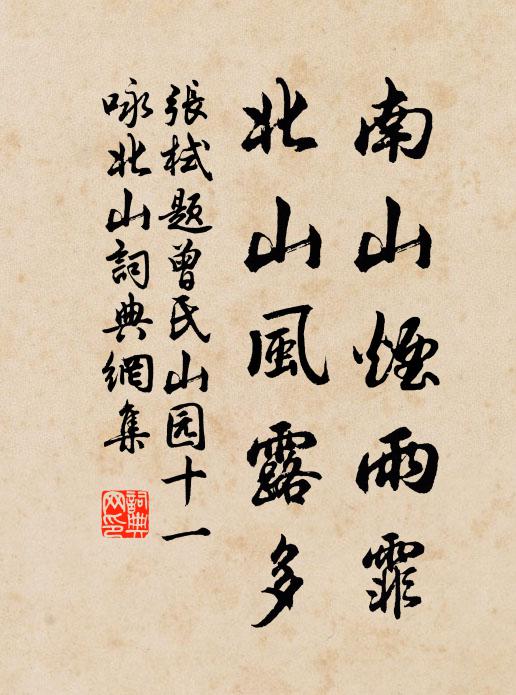 南山煙雨霏
北山風露多
張栻题曾氏山园十一
咏北山詞典網集
詞典
网印